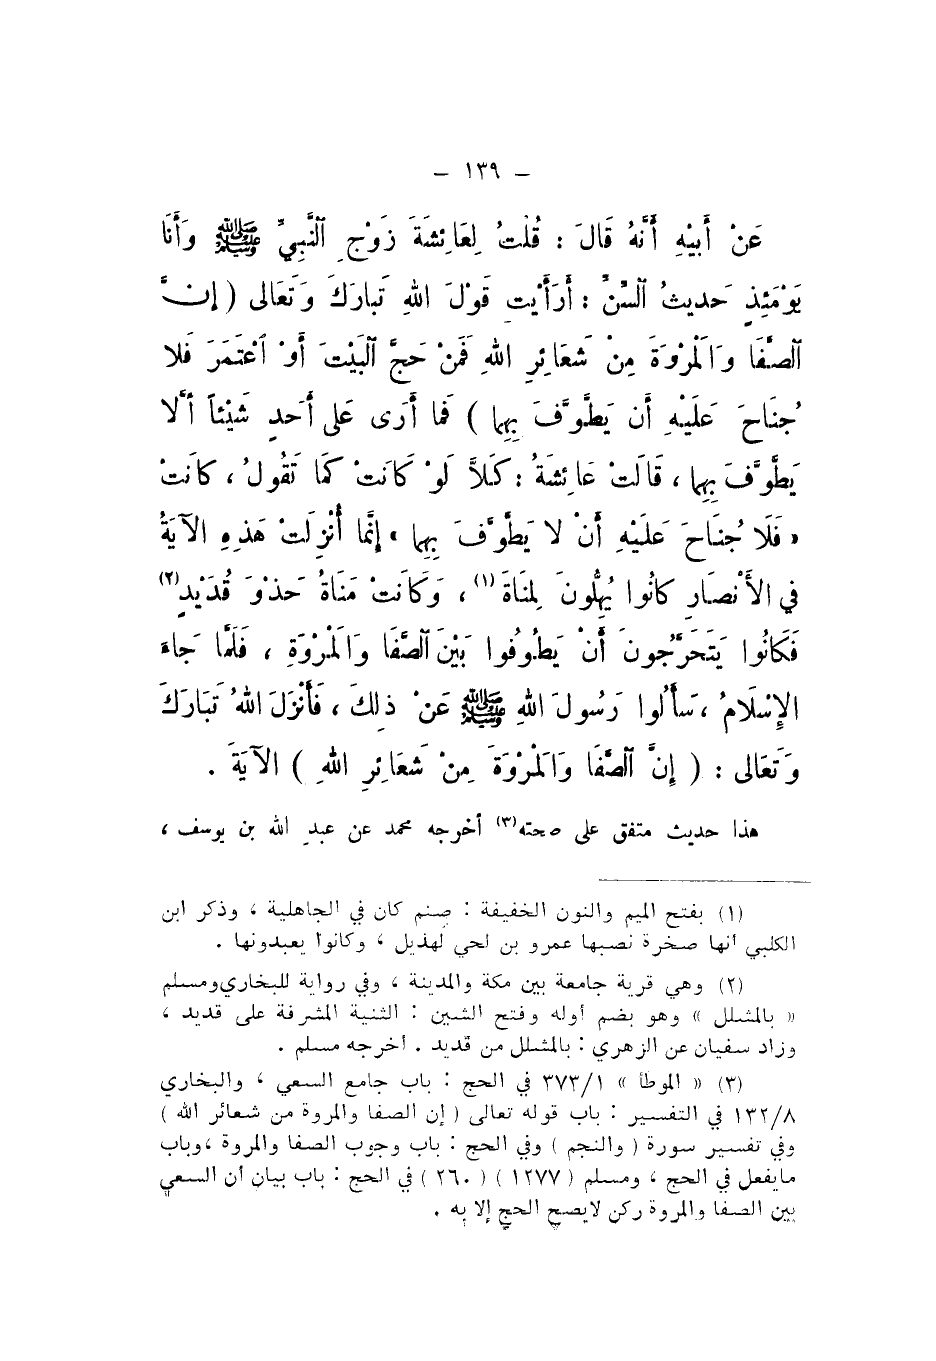 – ١٣٩ –
عَنْ أَبِيْهِ أَنَّهُ قَالَ : قُلْتُ لِعَائِشَةَ زَوْجِ النَّبِيِّ ﷺ وَأَنَا
يَوْمَئِذٍ حَدِيثُ السِّنِّ : أَرَأَيْتِ قَوْلَ اللهِ تَبَارَكَ وَتَعَالى ( إِنَّ
الصَّفَا وَالْمَرْوَةَ مِنْ شَعَائِرِ اللهِ فَمَنْ حَجَّ الْبَيْتَ أَوْ اعْتَمَرَ فَلا
جُنَاحَ عَلَيْهِ أَن يَطَّوَّفَ بِهِما ) فَما أَرَى عَلى أَحَدٍ شَيْئاً أَلا
يَطَّوَّفَ بِهِما ، قَالَتْ عَائِشَةُ : كَلاَّ لَوْ كَانَتْ كَمَا تَقُولُ ، كَانَتْ
« فَلَا جُنَاحَ عَلَيْهِ أَنْ لا يَطَّوَّفَ بِهِما » إِنَّما أُنْزِلَتْ هَذِهِ الآيَةُ
في الأَنْصَارِ كَانُوا يُهِلُّونَ لِمَناةَ (١) ، وَكَانَتْ مَنَاةُ حَذْوَ قُدَيْدٍ (٢)
فَكَانُوا يَتَحَرَّجُونَ أَنْ يَطُوفُوا بَيْنَ الصَّفَا وَالْمَرْوَةِ ، فَلَمَّا جَاءَ
الإِسْلَامُ ، سَأَلُوا رَسُولَ اللهِ ﷺ عَنْ ذلِكَ ، فَأَنْزَلَ اللهُ تَبَارَكَ
وَتَعَالى : ( إِنَّ الصَّفَا وَالْمَرْوَةَ مِنْ شَعَائِرِ اللهِ ) الآيَةَ .
هذا حديث متفق على صحته (٣) أخرجه محمد عن عبد الله بن يوسف ،
(١) بفتح الميم والنون الخفيفة : صنم كان في الجاهلية ، وذكر ابن
الكلبي أنها صخرة نصبها عمرو بن لحي لهذيل ، وكانوا يعبدونها .
(٢) وهي قرية جامعة بين مكة والمدينة ، وفي رواية للبخاري ومسلم
« بالمشلل » وهو بضم أوله وفتح الشين : الثنية المشرفة على قديد ،
وزاد سفيان عن الزهري : بالمشلل من قديد . أخرجه مسلم .
(٣) « الموطأ » ٣٧٣/١ في الحج : باب جامع السعي ، والبخاري
١٣٢/٨ في التفسير : باب قوله تعالى ( إن الصفا والمروة من شعائر الله )
وفي تفسير سورة ( والنجم ) وفي الحج : باب وجوب الصفا والمروة ، وباب
مايفعل في الحج ، ومسلم ( ١٢٧٧ ) ( ٢٦٠ ) في الحج : باب بيان أن السعي
بين الصفا والمروة ركن لايصح الحج إلا به .